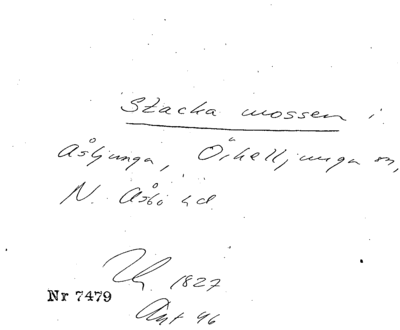 Stacka mossen i
Åsljunga, Örkelljunga sn,
N. Åsbo hd
1827
Nr 7479
Ant 46